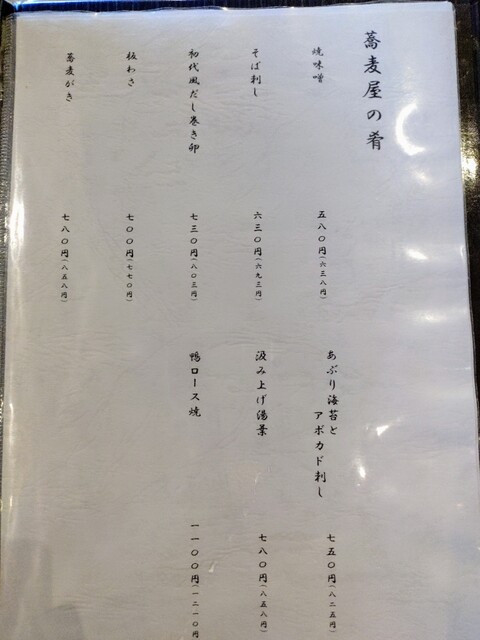 蕎麦屋の肴
焼味噌
五八〇円(六三八円)
そば刺し
六三〇円(六九三円)
初代風だし巻き卵
七三〇円(八〇三円)
板わさ
七〇〇円(七七〇円)
蕎麦がき
七八〇円(八五八円)
あぶり海苔と
アボカド刺し
七五〇円(八二五円)
汲み上げ湯葉
七八〇円(八五八円)
鴨ロース焼
一一〇〇円(一二一〇円